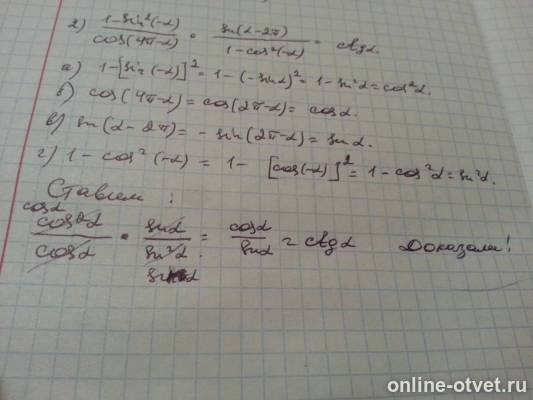 2) \frac{1-sin²(-α)}{cos(4π-α)} • \frac{sin(α-2π)}{1-cos²(-α)} = ctgα.
а) 1-[sin(-α)]² = 1-(-sinα)² = 1-sin²α = cos²α.
б) cos(4π-α) = cos(2π-α) = cosα.
в) sin(α-2π) = -sin(2π-α) = sinα.
г) 1-cos²(-α) = 1-[cos(-α)]² = 1-cos²α = sin²α.
Ставим:
cosα
\frac{cos²α}{cosα} • \frac{sinα}{sin²α} = \frac{cosα}{sinα} = ctgα Доказали!
sinα
online-otvet.ru